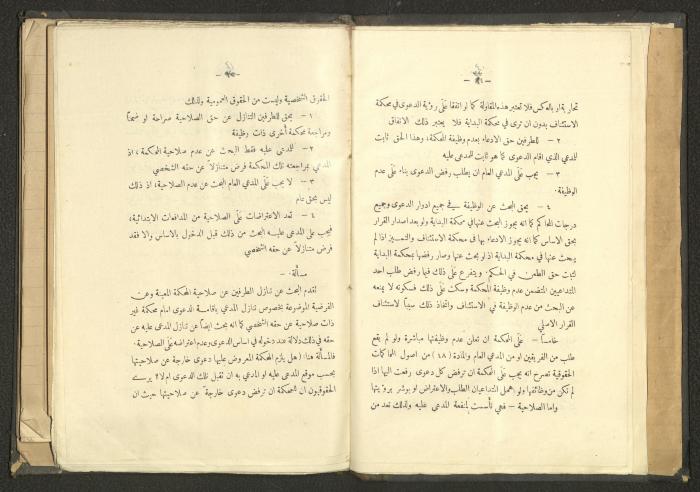 تجار بة او بالعكس فلا تعتبر هذه المقاولة كما لو اتفقا على رؤية الدعوى في محكمة
الاستئناف بدون ان ترى في محكمة البداية فلا يعتبر ذلك الاتفاق
٢ – للطرفين حق الادعاء بعدم وظيفة المحكمة، وهذا الحق ثابت
للمدعي الذي اقام الدعوى كما هو ثابت للمدعى عليه
٣ – يجب على المدعي العام ان يطلب رفض الدعوى بناء على عدم
الوظيفة.
٤ – يحق البحث عن الوظيفة في جميع ادوار الدعوى وجميع
درجات المحاكم كما انه يجوز البحث عنها في محكمة البداية ولو بعد اصدار القرار
بحق الاساس كما انه يجوز الادعاء بها في محكمة الاستئناف والتمييز اذا لم
يبحث عنها في محكمة البداية اذ لو بحث عنها وصار رفضها بمحكمة البداية
لثبات حق الطعن في الحكم. ويتفرع على ذلك فيما رفض طلب احد
المتداعيين المتضمن عدم وظيفة المحكمة وسكت على ذلك فسكوته لا يمنعه
عن البحث من عدم الوظيفة في الاستئناف واتخاذ ذلك سبباً لاستئناف
القرار الاصلي
خامساً – على المحكمة ان تعلن عدم وظيفتها مباشرة ولو لم يقع
طلب من الفريقين او من المدعي العام والمادة (١٨) من اصول المحاكمات
الحقوقية تصرح انه يجب على المحكمة ان ترفض كل دعوى رفعت اليها اذا
لم تكن من وظائفها ولو اهمل المتداعيان الطلب والاعتراض او بوشر برؤيتها
واما الصلاحية – فهي تأسست لمنفعة المدعى عليه ولذلك تعد من
الحقوق الشخصية وليست من الحقوق العمومية ولذلك
١ – يحق للطرفين التنازل عن حق الصلاحية صراحة او ضمناً
ومراجعة محكمة أخرى ذات وظيفة
٢ – للمدعى عليه فقط البحث عن عدم صلاحية المحكمة، اذ
المدعي بمراجعته تلك المحكمة فرض متنازلاً عن حقه الشخصي
٣ – لا يجب على المدعي العام البحث عن عدم الصلاحية، اذ ذلك
ليس بحق عام
٤ – تعد الاعتراضات على الصلاحية من المدافعات الابتدائية،
فيجب على المدعى عليه البحث من ذلك قبل الدخول بالاساس والا فقد
فرض متنازلاً عن حقه الشخصي
مسألة. –
تقدم البحث عن تنازل الطرفين عن صلاحية المحكمة المعينة وعن
الفرضية الموضوعة بخصوص تنازل المدعي باقامة الدعوى امام محكمة غير
ذات صلاحية عن حقه الشخصي كما انه بحث ايضاً عن تنازل المدعى عليه عن
حقه في ذلك دلالة عند دخوله في اساس الدعوى وعدم اعتراضه على الصلاحية.
فالمسألة هنا: (هل يلزم المحكمة المعروض عليها دعوى خارجة عن صلاحيتها
بحسب موقع المدعى عليه او المدعى به ان تقبل تلك الدعوى ام لا؟ يرى
الحقوقيون ان للمحكمة ان ترفض دعوى خارجة عن صلاحيتها حيث ان